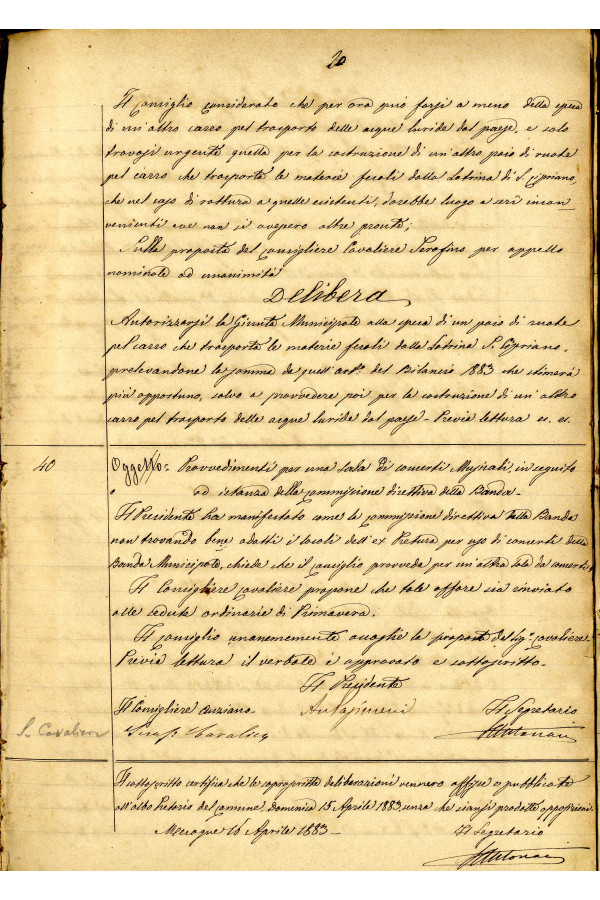 20
Il Consiglio considerato che per ora può farsi a meno della spesa
di un'altro carro pel trasporto delle acque luride dal paese, e solo
trovasi urgente quella per la costruzione di un'altro paio di ruote
pel carro che trasporta le materie fecali dalla Latrina di S. Cipriano,
che nel caso di rottura a quelle esistenti, darebbe luogo a seri incon-
venienti ove non si avessero altre pronte;
Sulla proposta del Consigliere Cavaliere Serafino per appello
nominale ad unanimità
Delibera
Autorizzarsi la Giunta Municipale alla spesa di un paio di ruote
pel carro che trasporta le materie fecali dalla Latrina S. Cipriano,
prelevandone la somma da quell'art.º del Bilancio 1883 che stimerà
più opportuno, salvo a provvedere poi per la costruzione di un'altro
carro pel trasporto delle acque luride dal paese - Previa lettura es. es.
40
Oggetto: Provvedimenti per una sala di concerti Musicali, in seguito
ad istanza della Commissione direttiva della Banda -
Il Presidente ha manifestato come la Commissione direttiva della Banda
non trovando bene adatti i locali dell'ex Pretura per uso di concerti della
Banda Municipale, chiede che il Consiglio provveda per un'altra sala da concerti.
Il Consigliere Cavaliere propone che tale affare sia rinviato
alle sedute ordinarie di Primavera.
Il Consiglio unanemente accoglie la proposta del Sig.r Cavaliere -
Previa lettura il verbale è approvato e sottoscritto -
Il Presidente
Il Consigliere Anziano
Il Segretario
S. Cavaliere
Seraf. Cavaliere
Il sottoscritto certifica che le soprascritte deliberazioni vennero affisse e pubblicate
all'albo Pretorio del Comune, domenica 15 Aprile 1883, senza che siansi prodotte opposizioni.
16 Aprile 1883 -
Il Segretario